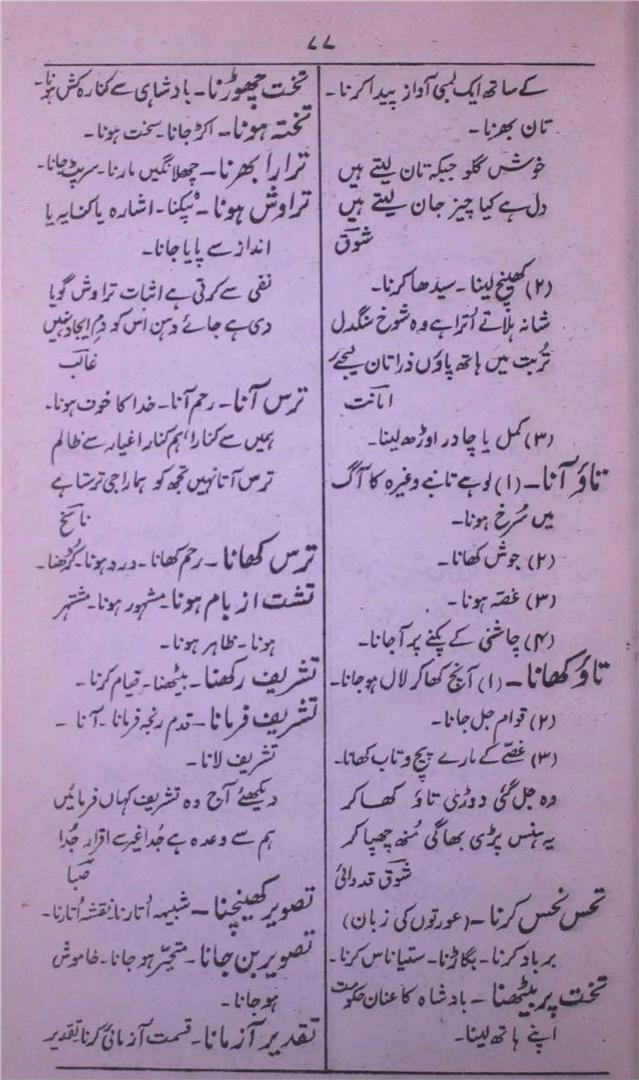 ۷۷
کے ساتھ ایک لمبی آواز پیدا کرنا۔
تان بھرنا۔
خوش گلو جبکہ تان لیتے ہیں
دل ہے کیا چیز جان لیتے ہیں
شوق
(۲) کھینچ لینا۔ سیدھا کرنا۔
شانہ ہلاتے اُترا ہے وہ شوخ سنگدل
تُربت میں ہاتھ پاؤں ذرا تان لیجے
امانت
(۳) کمل یا چادر اوڑھ لینا۔
تاؤ آنا۔ (۱) لوہے تانبے وغیرہ کا آگ
میں سُرخ ہونا۔
(۲) جوش کھانا۔
(۳) غصّہ ہونا۔
(۴) چاشنی کے پکنے پر آجانا۔
تاؤ کھانا۔ (۱) آنچ کھا کر لال ہو جانا۔
(۲) قوام جل جانا۔
(۳) غصّے کے مارے پیچ و تاب کھانا۔
وہ جل گئی دوڑی تاؤ کھا کر
یہ ہنس پڑی بھاگی مُنھ چھپا کر
شوق قدوائی
تحس نحس کرنا۔ (عورتوں کی زبان)
برباد کرنا۔ بگاڑنا۔ ستیاناس کرنا۔
تخت پر بیٹھنا۔ بادشاہ کا عنان حکومت
اپنے ہاتھ لینا۔
تخت چھوڑنا۔ بادشاہی سے کنارہ کش ہونا۔
تختہ ہونا۔ اکڑ جانا۔ سخت ہونا۔
ترارا بھرنا۔ چھلانگیں مارنا۔ سرپٹ جانا۔
تراوش ہونا۔ ٹپکنا۔ اشارہ یا کنایہ یا
انداز سے پایا جانا۔
نفی سے کرتی ہے اثبات تراوش گویا
دی ہے جائے دہن اس کو دمِ ایجاد نہیں
غالب
ترس آنا۔ رحم آنا۔ خدا کا خوف ہونا۔
ہمیں سے کنارا، ہم کنار اغیار سے ظالم
ترس آتا نہیں تجھ کو ہمارا جی ترستا ہے
ناسخ
ترس کھانا۔ رحم کھانا۔ درد ہونا۔ کُڑھنا۔
تشت از بام ہونا۔ مشہور ہونا۔ مشتہر
ہونا۔ ظاہر ہونا۔
تشریف رکھنا۔ بیٹھنا۔ قیام کرنا۔
تشریف فرمانا۔ قدم رنجہ فرمانا۔ آنا۔
تشریف لانا۔
دیکھئے آج وہ تشریف کہاں فرمائیں
ہم سے وعدہ ہے جُدا غیر سے اقرار جُدا
صبا
تصویر کھینچنا۔ شبیہہ اُتارنا۔ نقشہ اُتارنا۔
تصویر بن جانا۔ متحیّر ہو جانا۔ خاموش
ہو جانا۔
تقدیر آزمانا۔ قسمت آزمائی کرنا۔ تقدیر